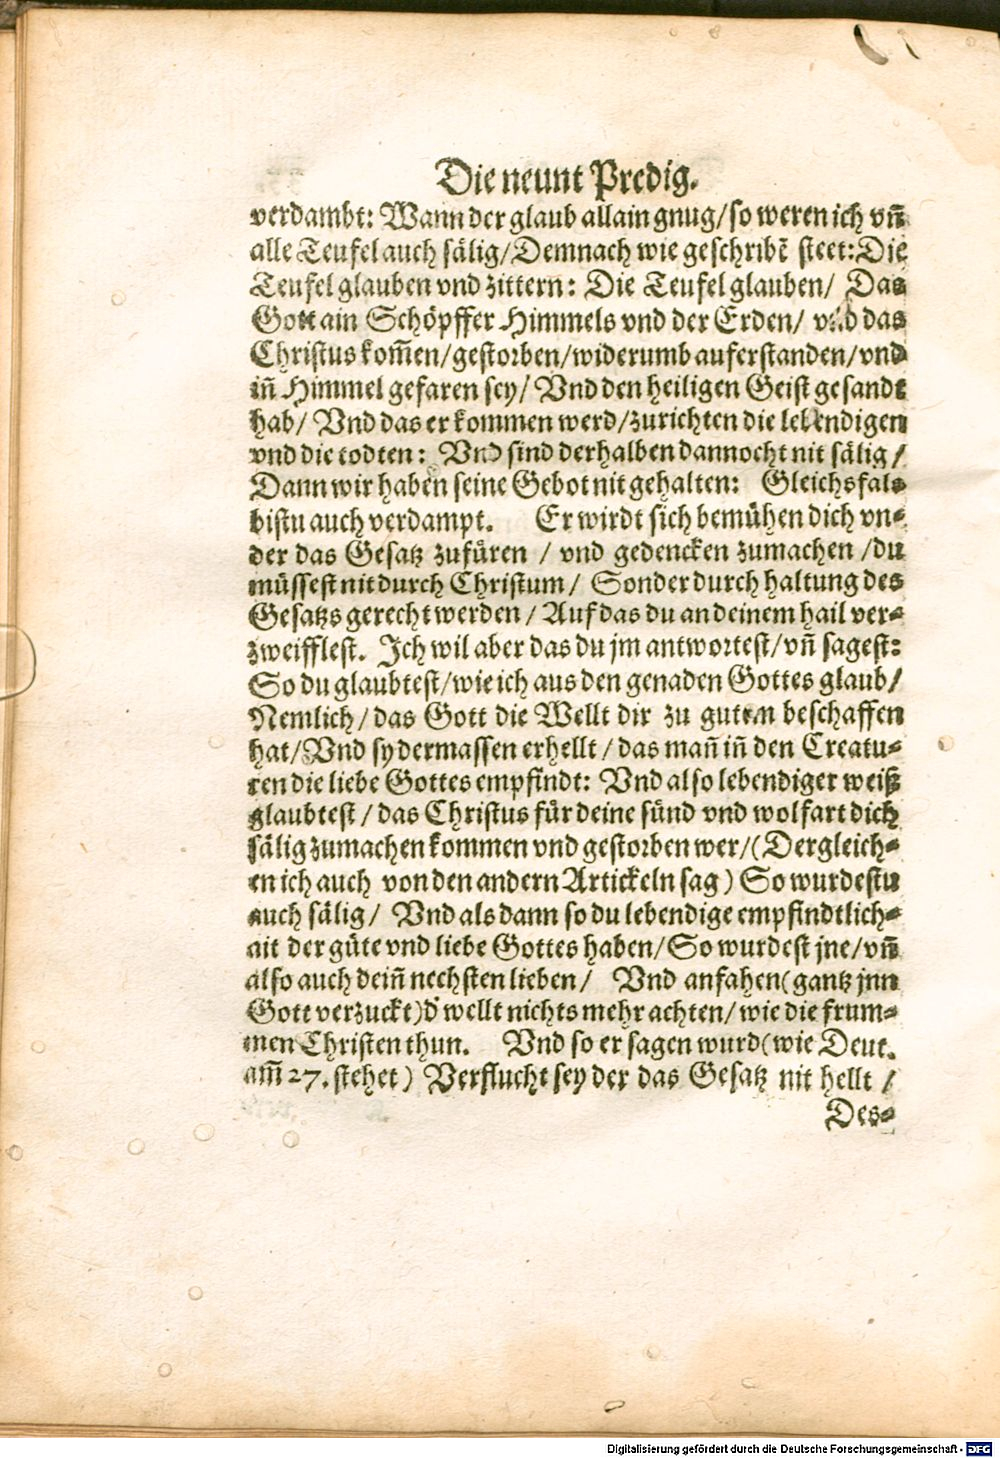 Die neunt Predig.
verdambt: Wann der glaub allain gnug/ so weren ich vn̄
alle Teufel auch sälig/ Demnach wie geschribē steet: Die
Teufel glauben vnd zittern: Die Teufel glauben/ Das
Gott ain Schöpffer Himmels vnd der Erden/ vnd das
Christus kom̄en/ gestorben/ widerumb auferstanden/ vnd
in̄ Himmel gefaren sey/ Vnd den heiligen Geist gesandt
hab/ Vnd das er kommen werd/ zurichten die lebendigen
vnd die todten: Vnd sind derhalben dannocht nit sälig/
Dann wir haben seine Gebot nit gehalten: Gleichsfals
bistu auch verdampt. Er wirdt sich bemühen dich vn⸗
der das Gesatz zufüren / vnd gedencken zumachen / du
müssest nit durch Christum/ Sonder durch haltung des
Gesatzs gerecht werden/ Auf das du an deinem hail ver⸗
zweifflest. Ich wil aber das du jm antwortest/ vn̄ sagest:
So du glaubtest/ wie ich aus den genaden Gottes glaub/
Nemlich/ das Gott die Wellt dir zu gutem beschaffen
hat/ Vnd sy dermassen erhellt/ das man̄ in̄ den Creatu⸗
ren die liebe Gottes empfindt: Vnd also lebendiger weiß
glaubtest/ das Christus für deine sünd vnd wolfart dich
sälig zumachen kommen vnd gestorben wer/ (Dergleich⸗
en ich auch von den andern Artickeln sag) So wurdestu
auch sälig/ Vnd als dann so du lebendige empfindtlich⸗
ait der güte vnd liebe Gottes haben/ So wurdest jne/ vn̄
also auch dein̄ nechsten lieben/ Vnd anfahen (gantz jnn
Gott verzuckt) d' wellt nichts mehr achten/ wie die frum⸗
men Christen thun. Vnd so er sagen wurd (wie Deut.
am̄ 27. stehet) Verflucht sey der das Gesatz nit hellt /
Des⸗
Digitalisierung gefördert durch die Deutsche Forschungsgemeinschaft - DFG